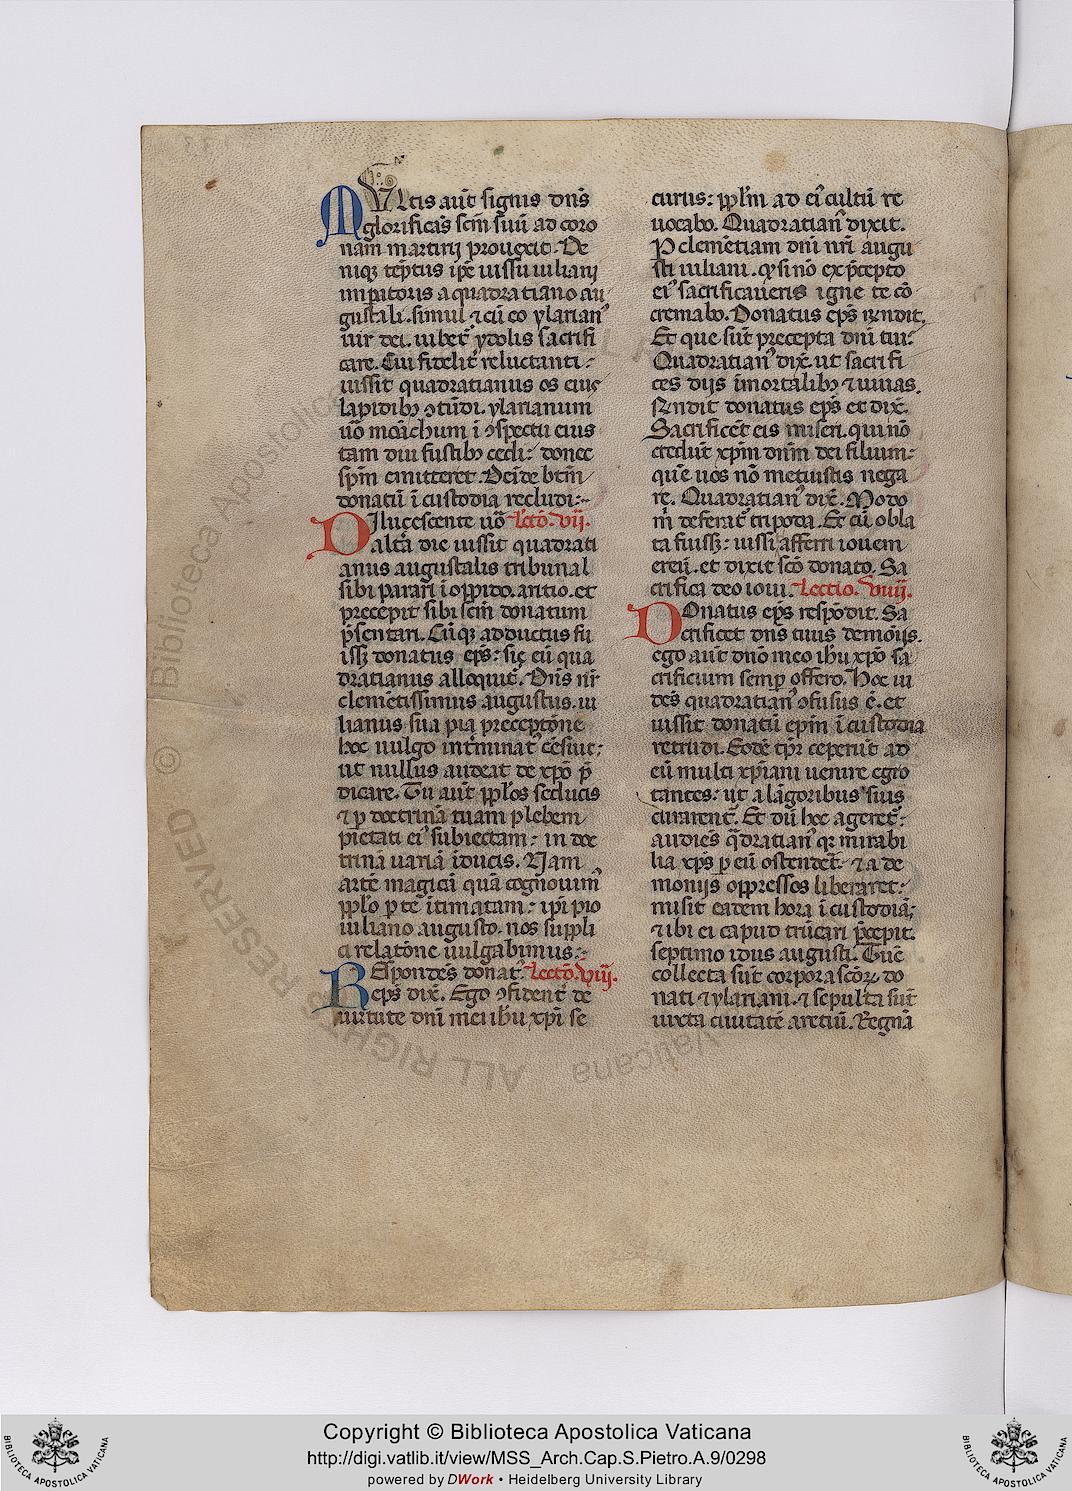 MUltis aūt signis dn̄s
glorificās scm̄ suū ad coro
nam martirij prouexit. De
niqꝫ tēptus ip̄e iussu iuliani
imp̄atoris a quadratiano au
gustali. simul ⁊ cū eo ylarianꝰ
uir dei. iubet᷑ ydolis sacrifi
care. Cui fidelit᷑ reluctanti:
iussit quadratianus os eius
lapidibꝫ ꝯtūdi. ylarianum
uō monachum ī ꝯspectu eius
tam diu fustibꝫ cedi: donec
sp̄m emitteret. Deīde btm̄
donatū ī custodia recludi:
DIlucescente uō Lectō. vii.
alt᷑a die iussit quadrati
anus augustalis tribunal
sibi parari ī oppido. aritio. et
precepit sibi scm̄ donatum
p̄sentari. Cūqꝫ adductus fu
issꝫ donatus ep̄s: sic eū qua
dratianus alloquit᷑. Dn̄s nr̄
clemētissimus augustus. iu
lianus sua pia preceptōne
hoc uulgo int᷑minat᷑ cēsuit:
ut nullus audeat de xp̄o p̄
dicare. Tu aūt pplos seducis
⁊ ꝑ doctrinā tuam plebem
pietati eiꝰ subiectam: in doc
trinā uariā īducis. Nam
artē magicā quā cognouimꝰ
pplo ꝑ te ītimatam: ip̄i pio
iuliano augusto. nos suppli
ci relatōne uulgabimus:
REspondēs donatꝰ Lectō. viij.
ep̄s dix̄. Ego ꝯfident᷑ de
uirtute dn̄i mei ih̄u xp̄i se
curus: pplm̄ ad eiꝰ cultū re
uocabo. Quadratianꝰ dixit.
P clemētiam dn̄i nr̄i augu
sti iuliani. qꝛ si nō ex p̄cepto
eiꝰ sacrificaueris igne te cō
cremabo. Donatus ep̄s rn̄dit.
Et que sūt precepta dn̄i tui:
Quadratianꝰ dix̄. ut sacrifi
ces dijs īmortalibꝫ ⁊ uiuas.
Rn̄dit donatus ep̄s et dix̄.
Sacrificēt eis miseri. qui nō
credūt xp̄m dn̄m dei filium:
quē uos nō metuistis nega
re. Quadratianꝰ dix̄. Modo
m̄ deferat᷑ tripoda. Et cū obla
ta fuissꝫ: iussi afferri iouem
ereū. et dixit scō donato. Sa
crifica deo ioui. Lectio. viiij.
DOnatus ep̄s respōdit. Sa
crificet dn̄s tuus demōijs.
ego aūt dn̄o meo ih̄u xp̄o sa
crificium semꝑ offero. Hoc ui
dēs quadratianꝰ ꝯfusus ē. et
iussit donatū ep̄m ī custodia
retrudi. Eodē tp̄r ceperūt ad
eū multi xp̄iani uenire egro
tantes: ut a lāgoribus suis
curarent᷑. Et dū hoc ageret᷑:
audiēs q̄dratianꝰ qꝛ mirabi
lia xp̄s ꝑ eū ostendēt. ⁊ a de
monijs oppressos liberaret:
misit eadem hora ī custodiā;
⁊ ibi ei capud trūcari p̄cepit.
septimo idus augusti. Tūc
collecta sūt corpora scōꝝ do
nati ⁊ ylariani. ⁊ sepulta sūt
iuxta ciuitatē aretiū. Regnā
Copyright © Biblioteca Apostolica Vaticana
http://digi.vatlib.it/view/MSS_Arch.Cap.S.Pietro.A.9/0298
powered by DWork • Heidelberg University Library
BIBLIOTECA APOSTOLICA VATICANA
BIBLIOTECA APOSTOLICA VATICANA
© Biblioteca Apostolica Vaticana
ALL RIGHTS RESERVED